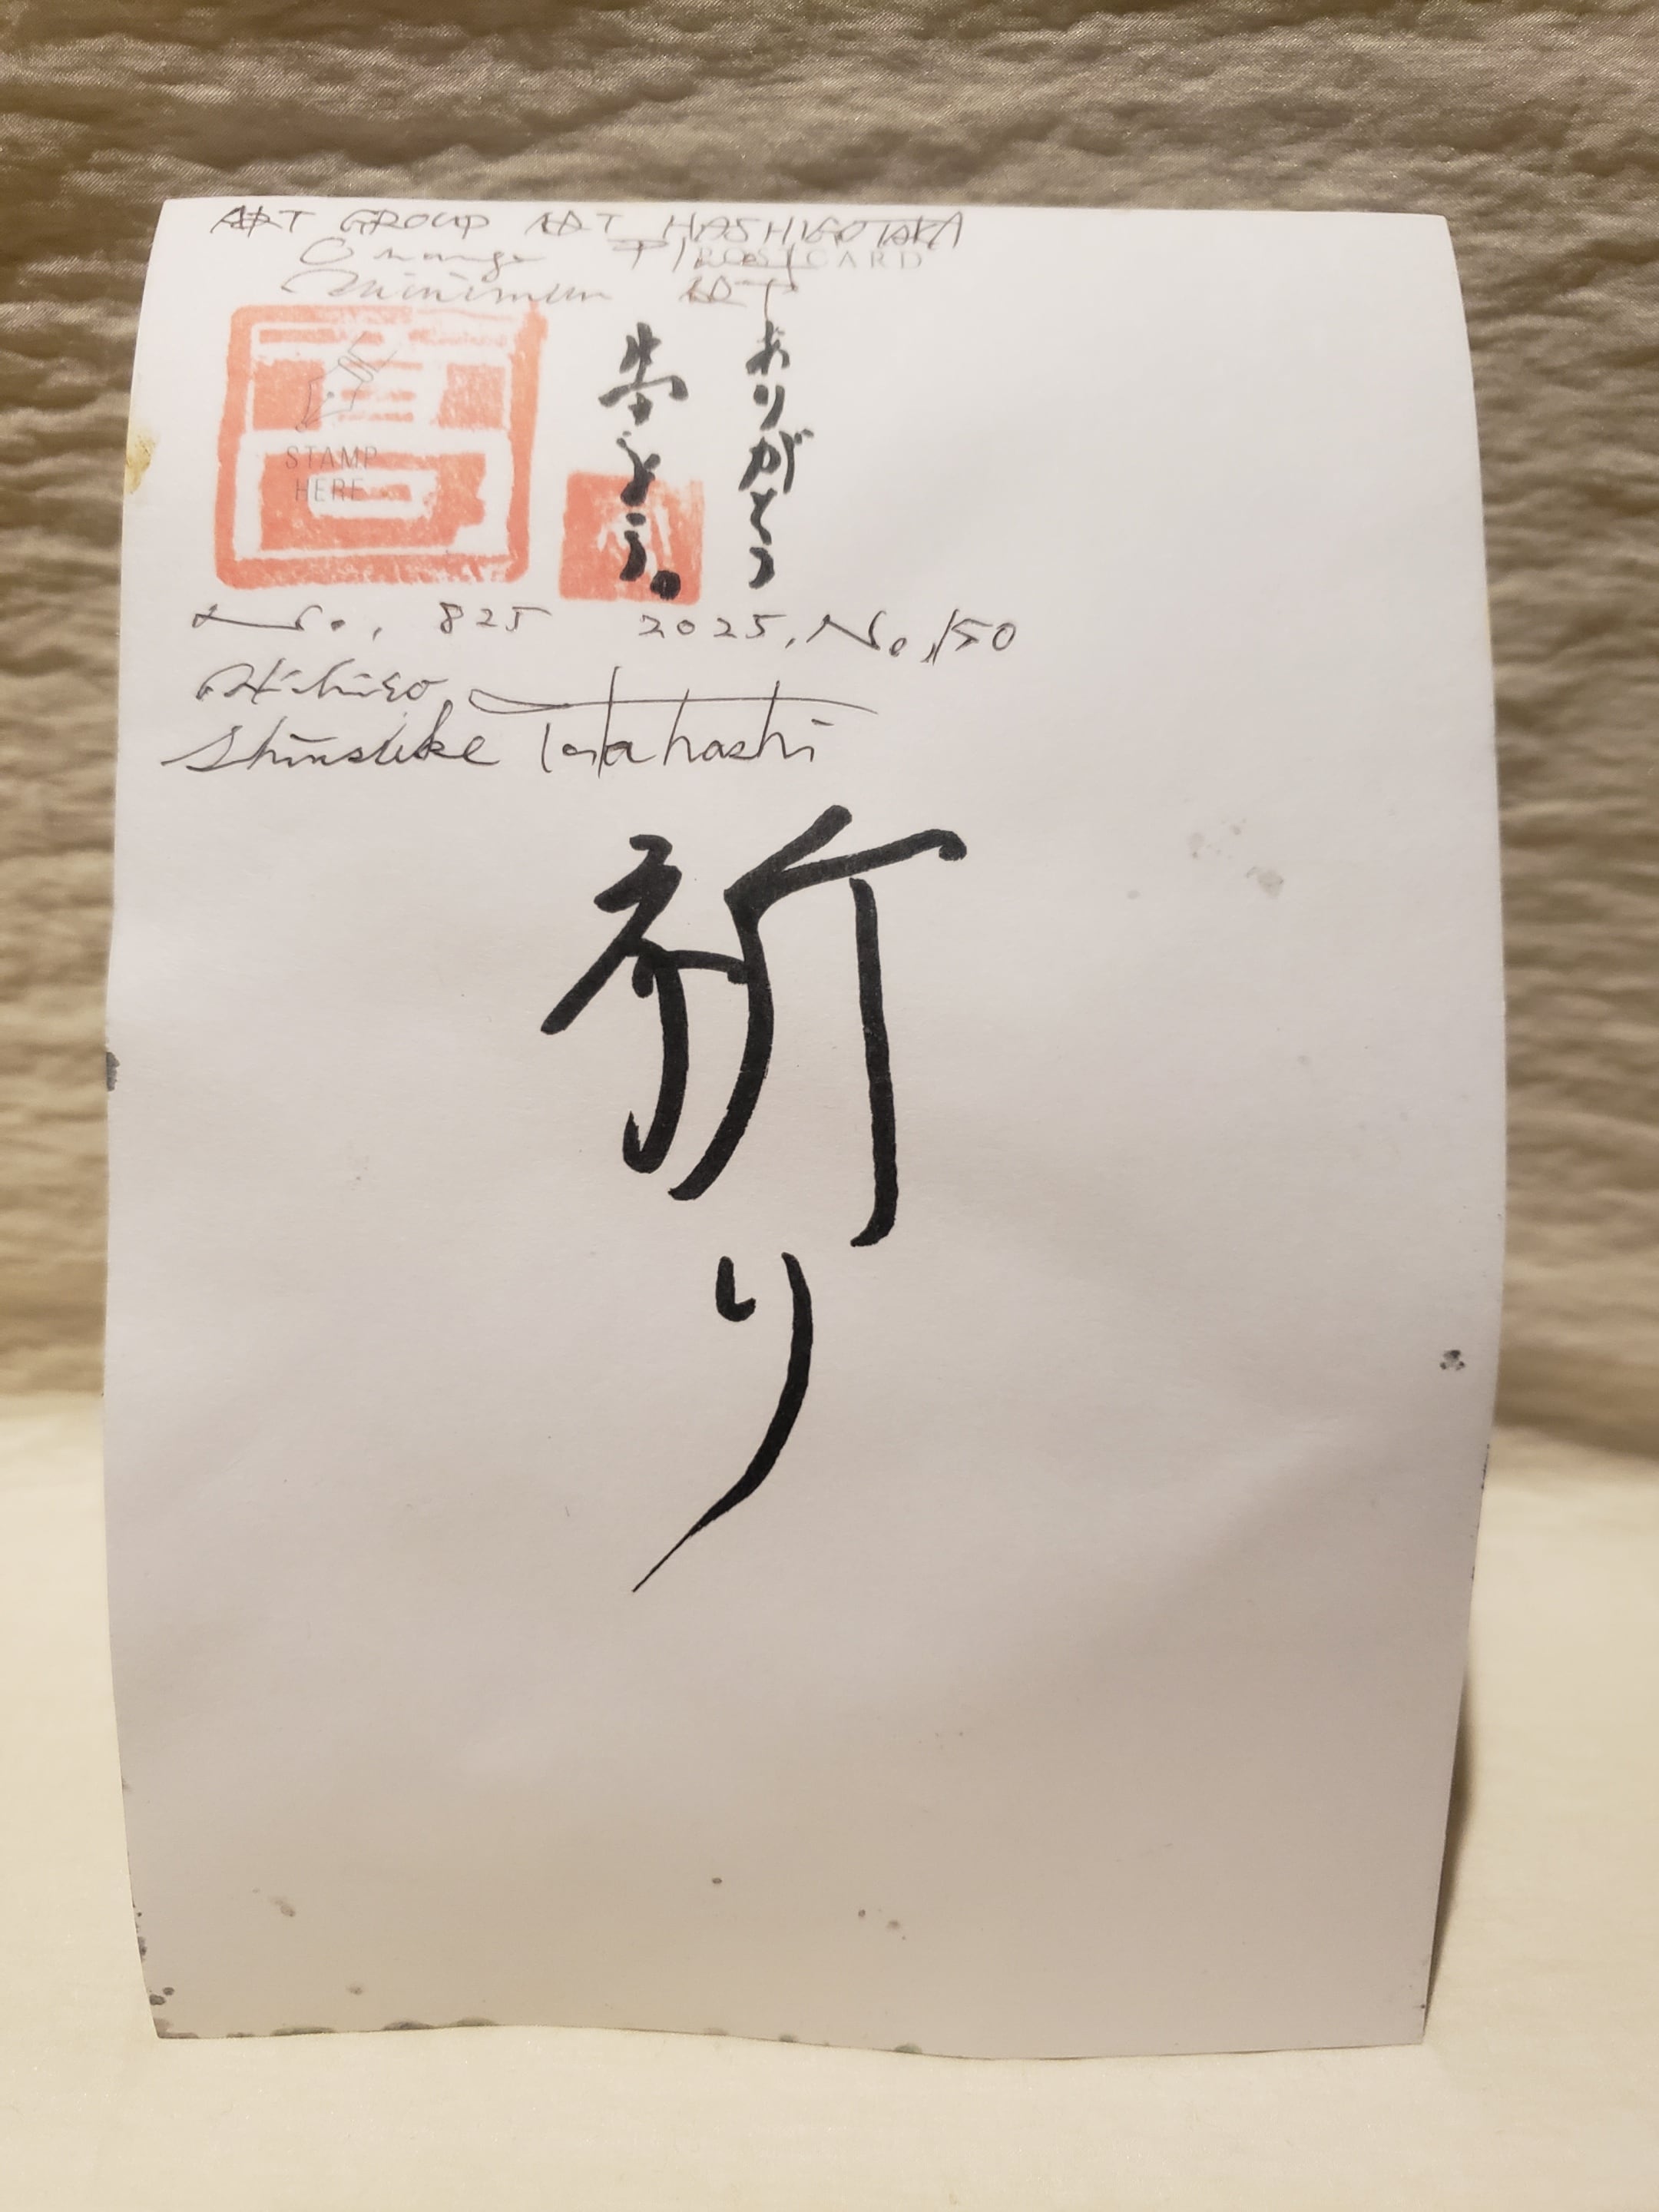 ART GROUP ART HASHIGOTAKA
Orange Planet
POSTCARD
Minimum ART
ありがとう
STAMP
HERE
No. 825 2025. No. 150
Akihiro
Shinsuke Takahashi
祈り